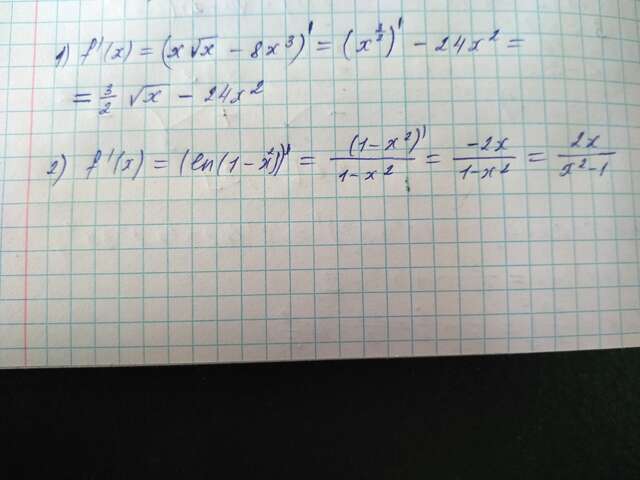 1) f'(x) = (x√x - 8x³)' = (x^{3/2})' - 24x² =
= 3/2 √x - 24x²
2) f'(x) = (ln(1-x²))' = (1-x²)'/1-x² = -2x/1-x² = 2x/x²-1